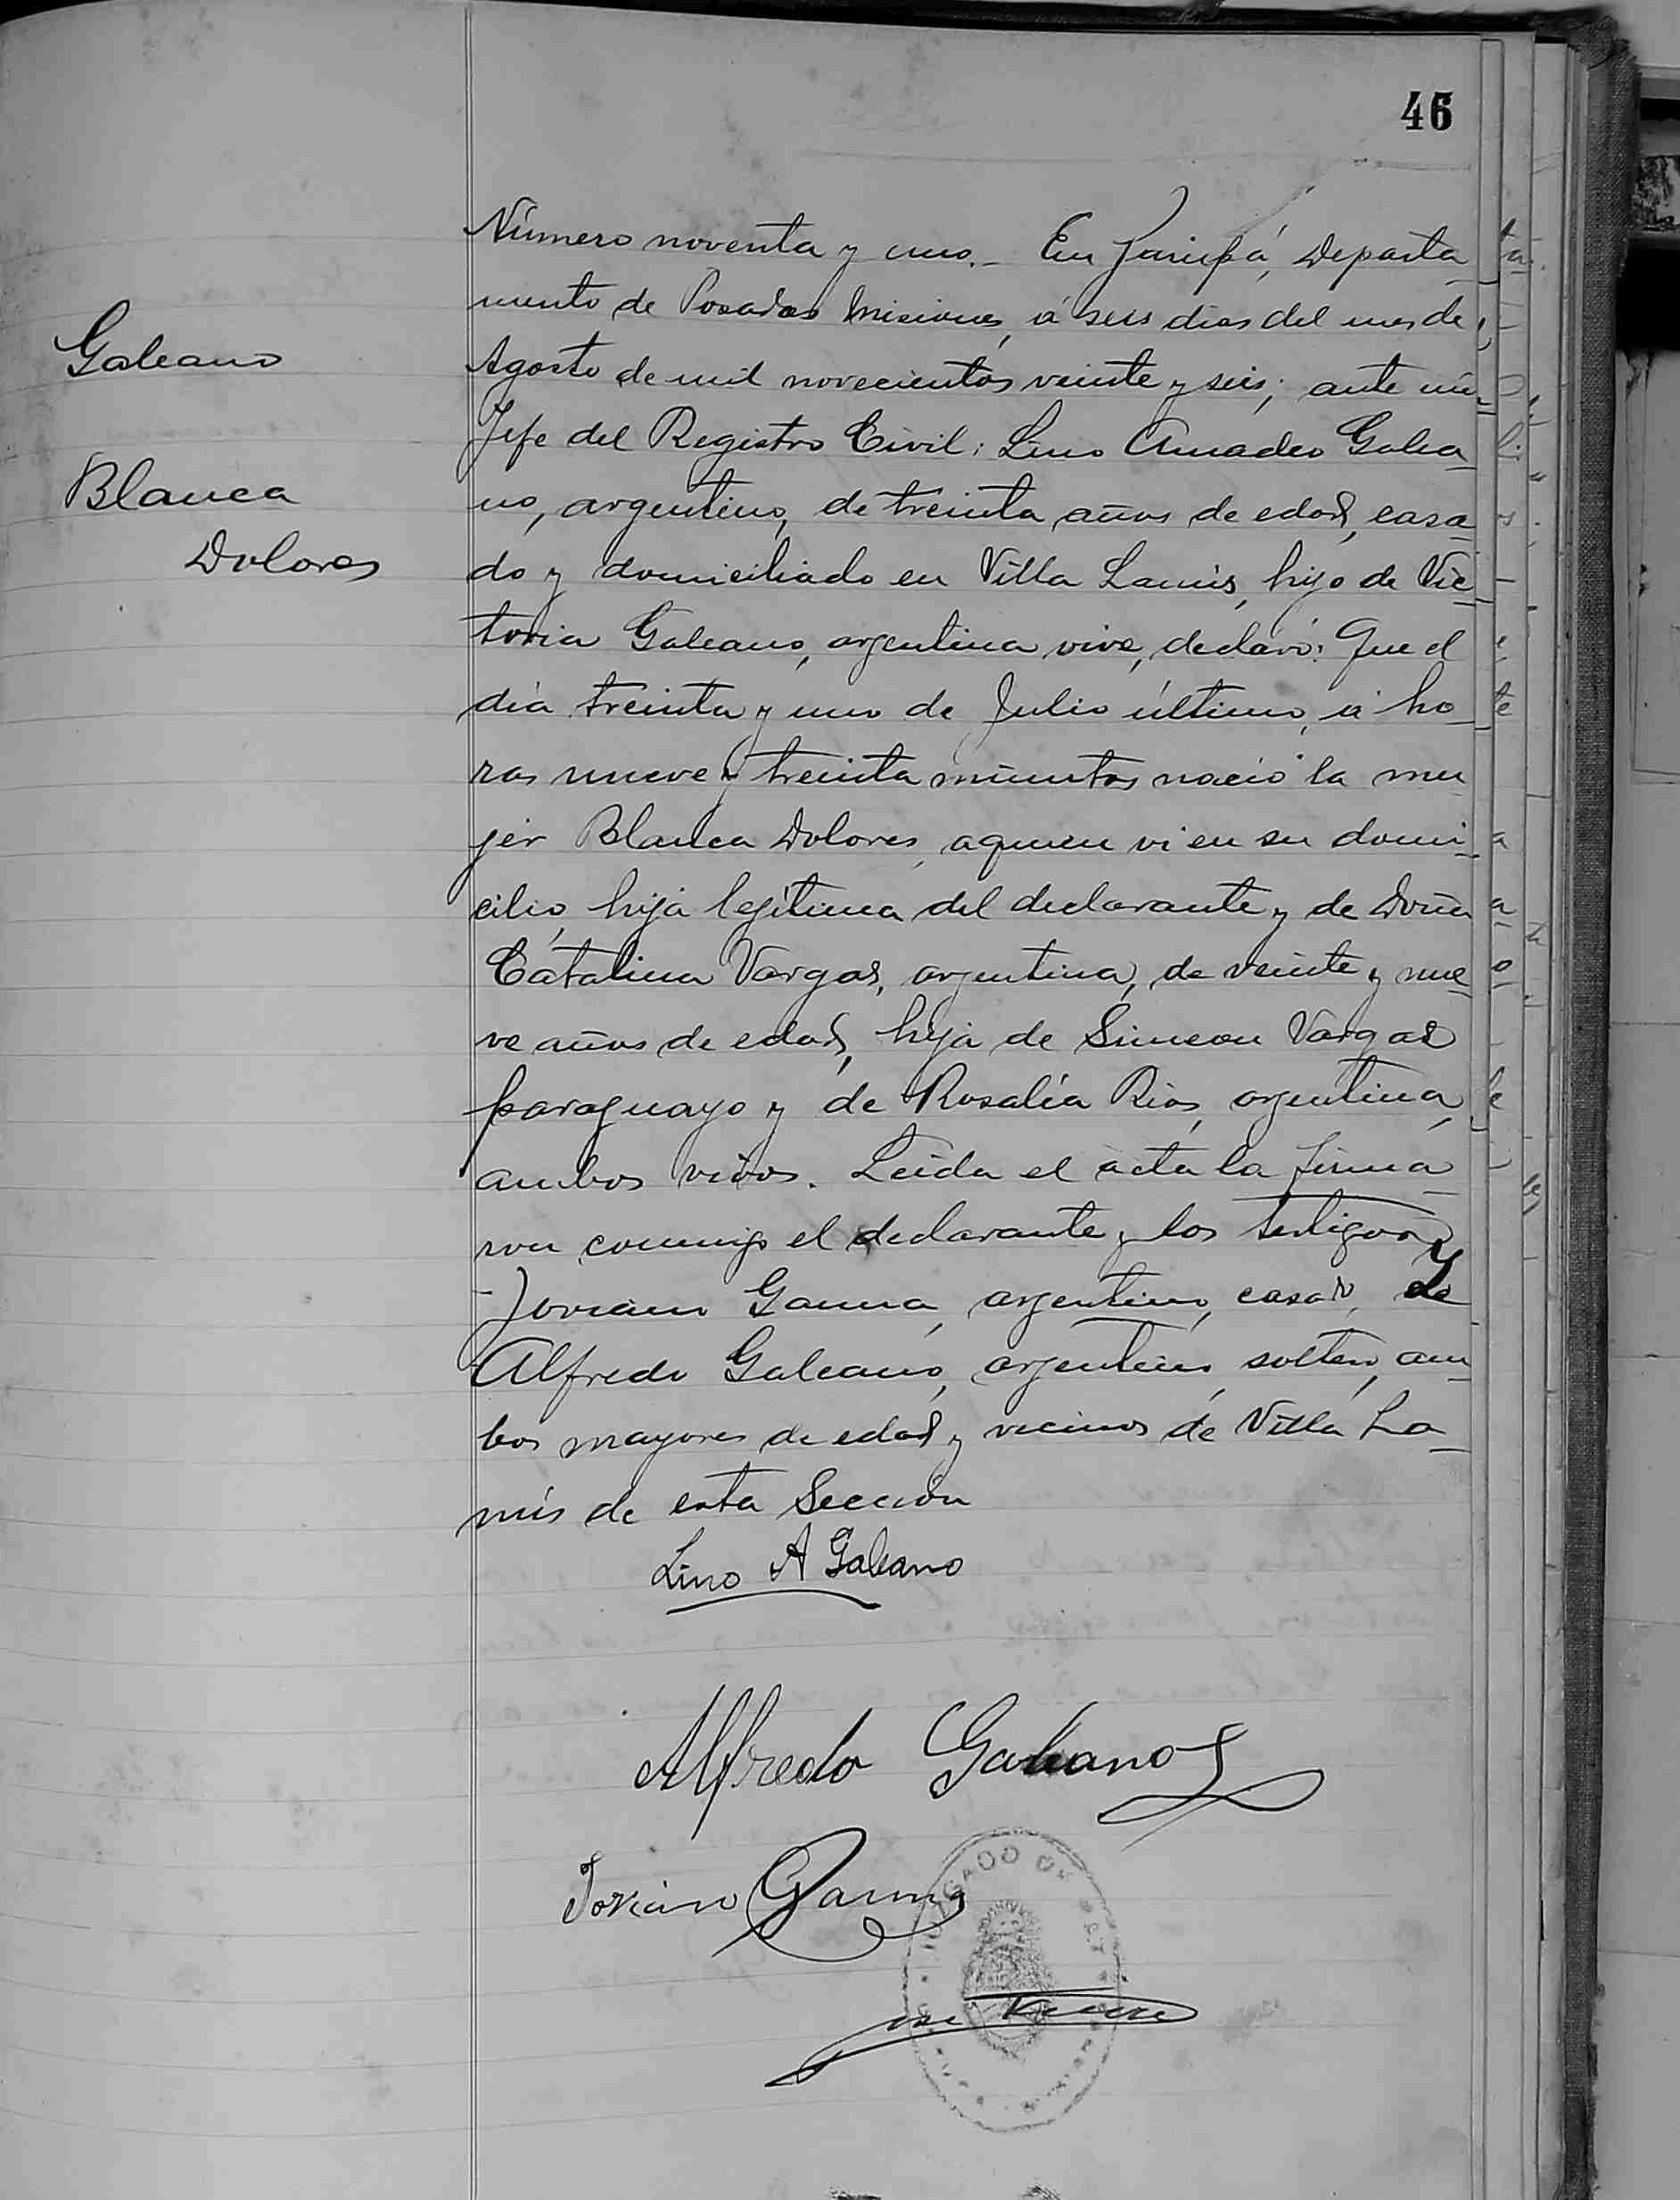 46
Galeano
Blanca
Dolores
Número noventa y uno. _ En Garupá, Departa
mento de Posadas Misiones, á seis dias del mes de
Agosto de mil novecientos veinte y seis; ante mi
Jefe del Registro Civil: Lino Amadeo Galea_
no, argentino, de treinta años de edad, casa_
do y domiciliado en Villa Lanús, hijo de Vic_
toria Galeano, argentina viva, declaró: Que el
dia treinta y uno de Julio último, á ho_
ras nueve y treinta minutos nació la mu_
jer Blanca Dolores, aquien vi en su domi_
cilio, hija legítima del declarante y de Doña
Catalina Vargas, argentina, de veinte y nue_
ve años de edad, hija de Simeon Vargas
paraguayo y de Rosalía Rios, argentina,
ambos vivos. Leida el acta la firma_
ron conmigo el declarante y los testigos
Joviano Gauna, argentino, casado, y
Alfredo Galeano, argentino, soltero, am_
bos mayores de edad y vecinos de Villa La_
nús de esta Sección
Lino A Galeano
Alfredo Galeano
Joviano Gauna
JUZGADO DE